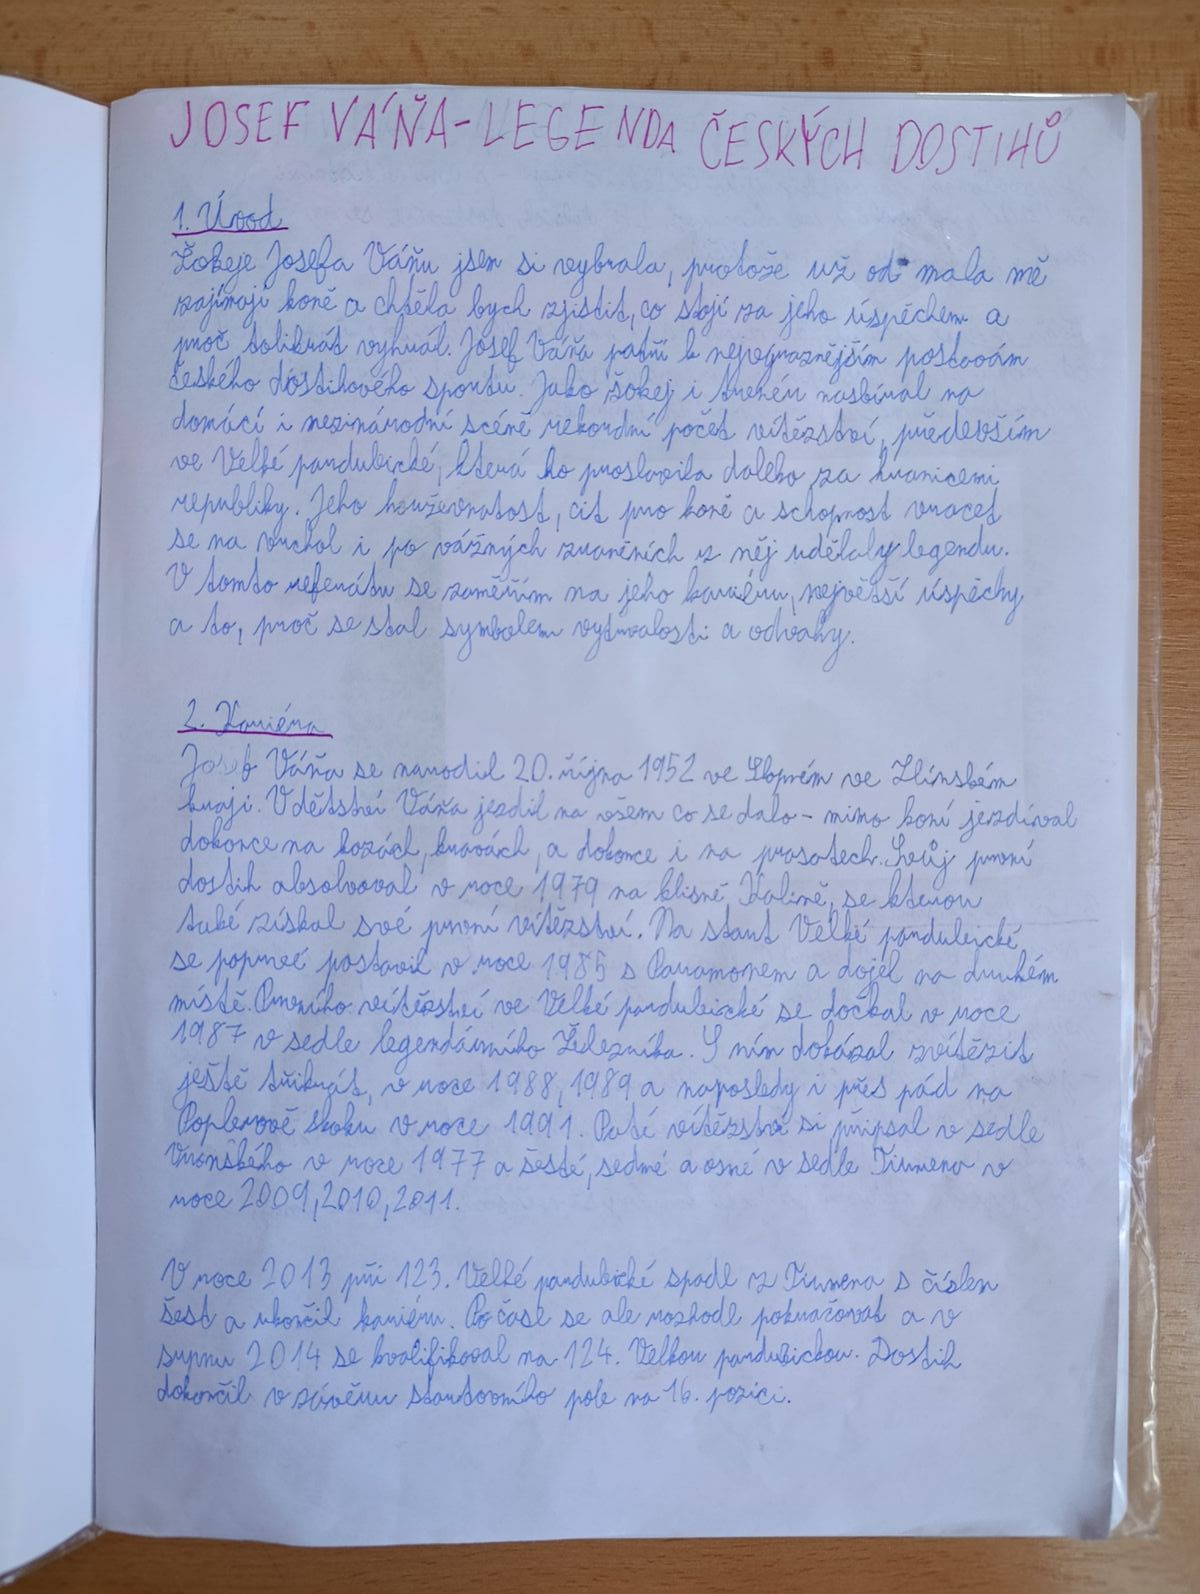 JOSEF VÁŇA - LEGENDA ČESKÝCH DOSTIHŮ
1. Úvod
Žokeje Josefa Váňu jsem si vybrala, protože už od mala mě
zajímají koně a chtěla bych zjistit, co stojí za jeho úspěchem a
proč tolikrát vyhrál. Josef Váňa patří k nejvýraznějším postavám
českého dostihového sportu. Jako žokej i trenér nasbíral na
domácí i mezinárodní scéně rekordní počet vítězství, především
ve Velké pardubické, která ho proslavila daleko za hranicemi
republiky. Jeho houževnatost, cit pro koně a schopnost vracet
se na vrchol i po vážných zraněních z něj udělaly legendu.
V tomto referátu se zaměřím na jeho kariéru, největší úspěchy
a to, proč se stal symbolem vytrvalosti a odvahy.
2. Kariéra
Josef Váňa se narodil 20. října 1952 ve Slopném ve Zlínském
kraji. V dětství Váňa jezdil na všem co se dalo - mimo koní jezdíval
dokonce na kozách, kravách, a dokonce i na prasatech. Svůj první
dostih absolvoval v roce 1979 na klisně Kalině, se kterou
také získal své první vítězství. Na start Velké pardubické
se poprvé postavil v roce 1985 s Paramonem a dojel na druhém
místě. Prvního vítězství ve Velké pardubické se dočkal v roce
1987 v sedle legendárního Železníka. S ním dokázal zvítězit
ještě třikrát, v roce 1988, 1989 a naposledy i přes pád na
Poplerově skoku v roce 1991. Páté vítězství si připsal v sedle
Vronského v roce 1977 a šesté, sedmé a osmé v sedle Tiumena v
roce 2009, 2010, 2011.
V roce 2013 při 123. Velké pardubické spadl z Tiumena s číslem
šest a ukončil kariéru. Po čase se ale rozhodl pokračovat a v
srpnu 2014 se kvalifikoval na 124. Velkou pardubickou. Dostih
dokončil v závěru startovního pole na 16. pozici.